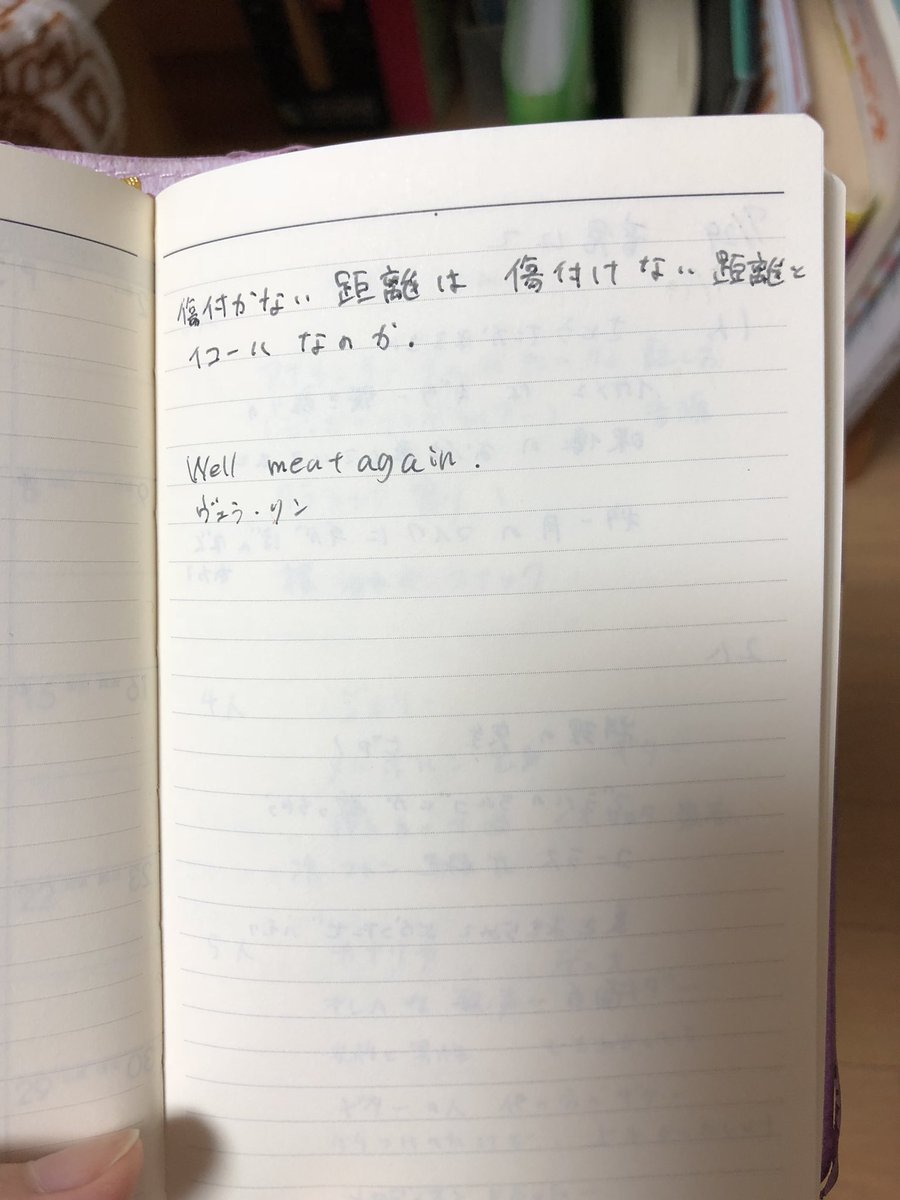 傷付かない 距離は 傷付けない 距離と
イコール なのか.
Well meat again.
ヴェラ・リン